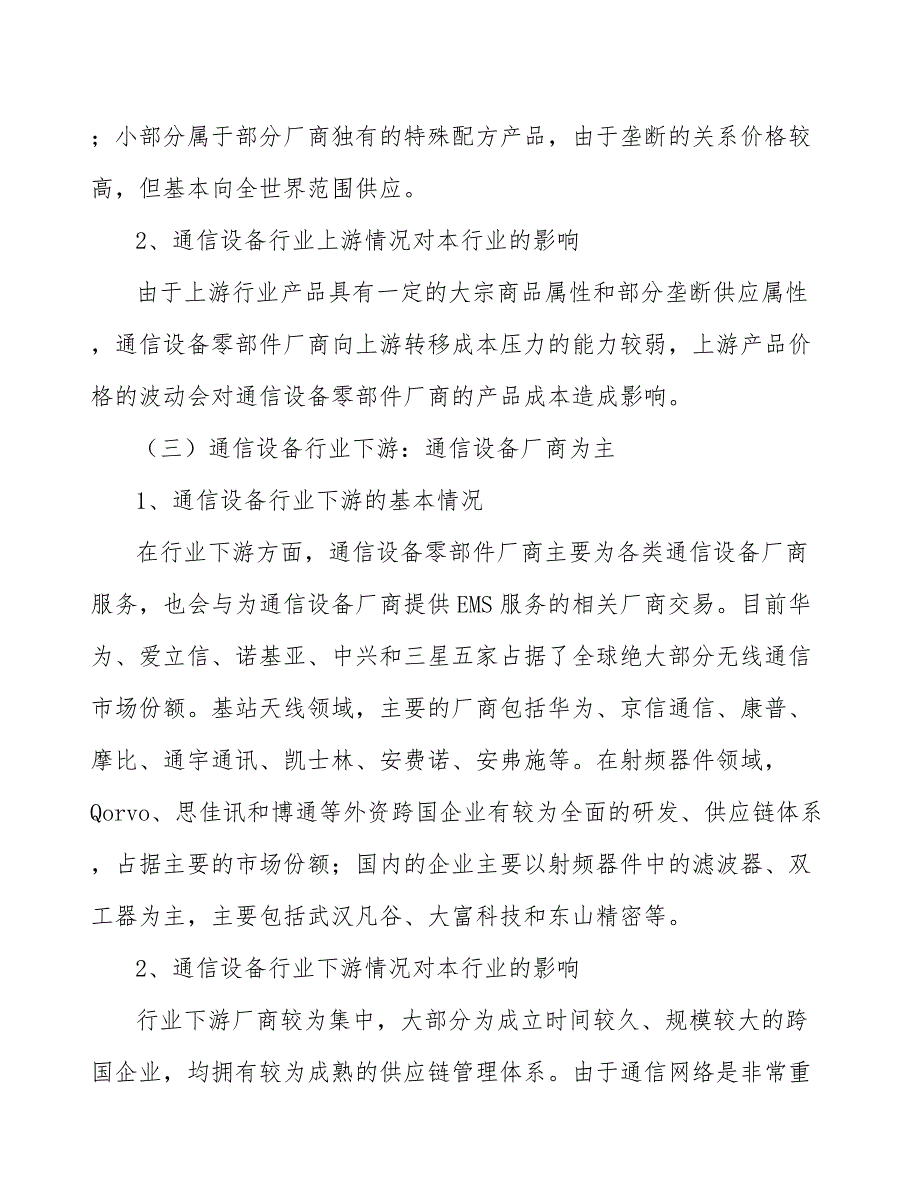 ；小部分属于部分厂商独有的特殊配方产品，由于垄断的关系价格较
高，但基本向全世界范围供应。
2、通信设备行业上游情况对本行业的影响
由于上游行业产品具有一定的大宗商品属性和部分垄断供应属性
，通信设备零部件厂商向上游转移成本压力的能力较弱，上游产品价
格的波动会对通信设备零部件厂商的产品成本造成影响。
（三）通信设备行业下游：通信设备厂商为主
1、通信设备行业下游的基本情况
在行业下游方面，通信设备零部件厂商主要为各类通信设备厂商
服务，也会与为通信设备厂商提供 EMS 服务的相关厂商交易。目前华
为、爱立信、诺基亚、中兴和三星五家占据了全球绝大部分无线通信
市场份额。基站天线领域，主要的厂商包括华为、京信通信、康普、
摩比、通宇通讯、凯士林、安费诺、安弗施等。在射频器件领域，
Qorvo、思佳讯和博通等外资跨国企业有较为全面的研发、供应链体系
，占据主要的市场份额；国内的企业主要以射频器件中的滤波器、双
工器为主，主要包括武汉凡谷、大富科技和东山精密等。
2、通信设备行业下游情况对本行业的影响
行业下游厂商较为集中，大部分为成立时间较久、规模较大的跨
国企业，均拥有较为成熟的供应链管理体系。由于通信网络是非常重